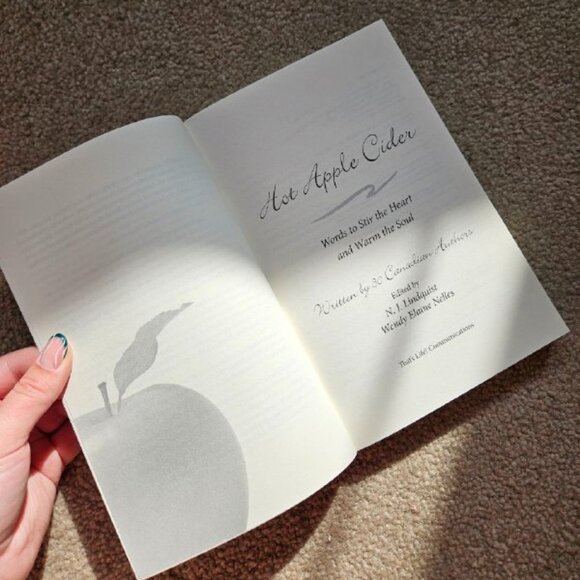 Hot Apple Cider
Words to Stir the Heart
and Warm the Soul
Written by 30 Canadian Authors
Edited by
N. J. Lindquist
Wendy Elaine Nelles
That's Life! Communications